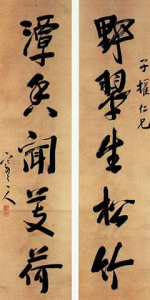 野翠生松竹
子權仁兄
潭香聞芰荷